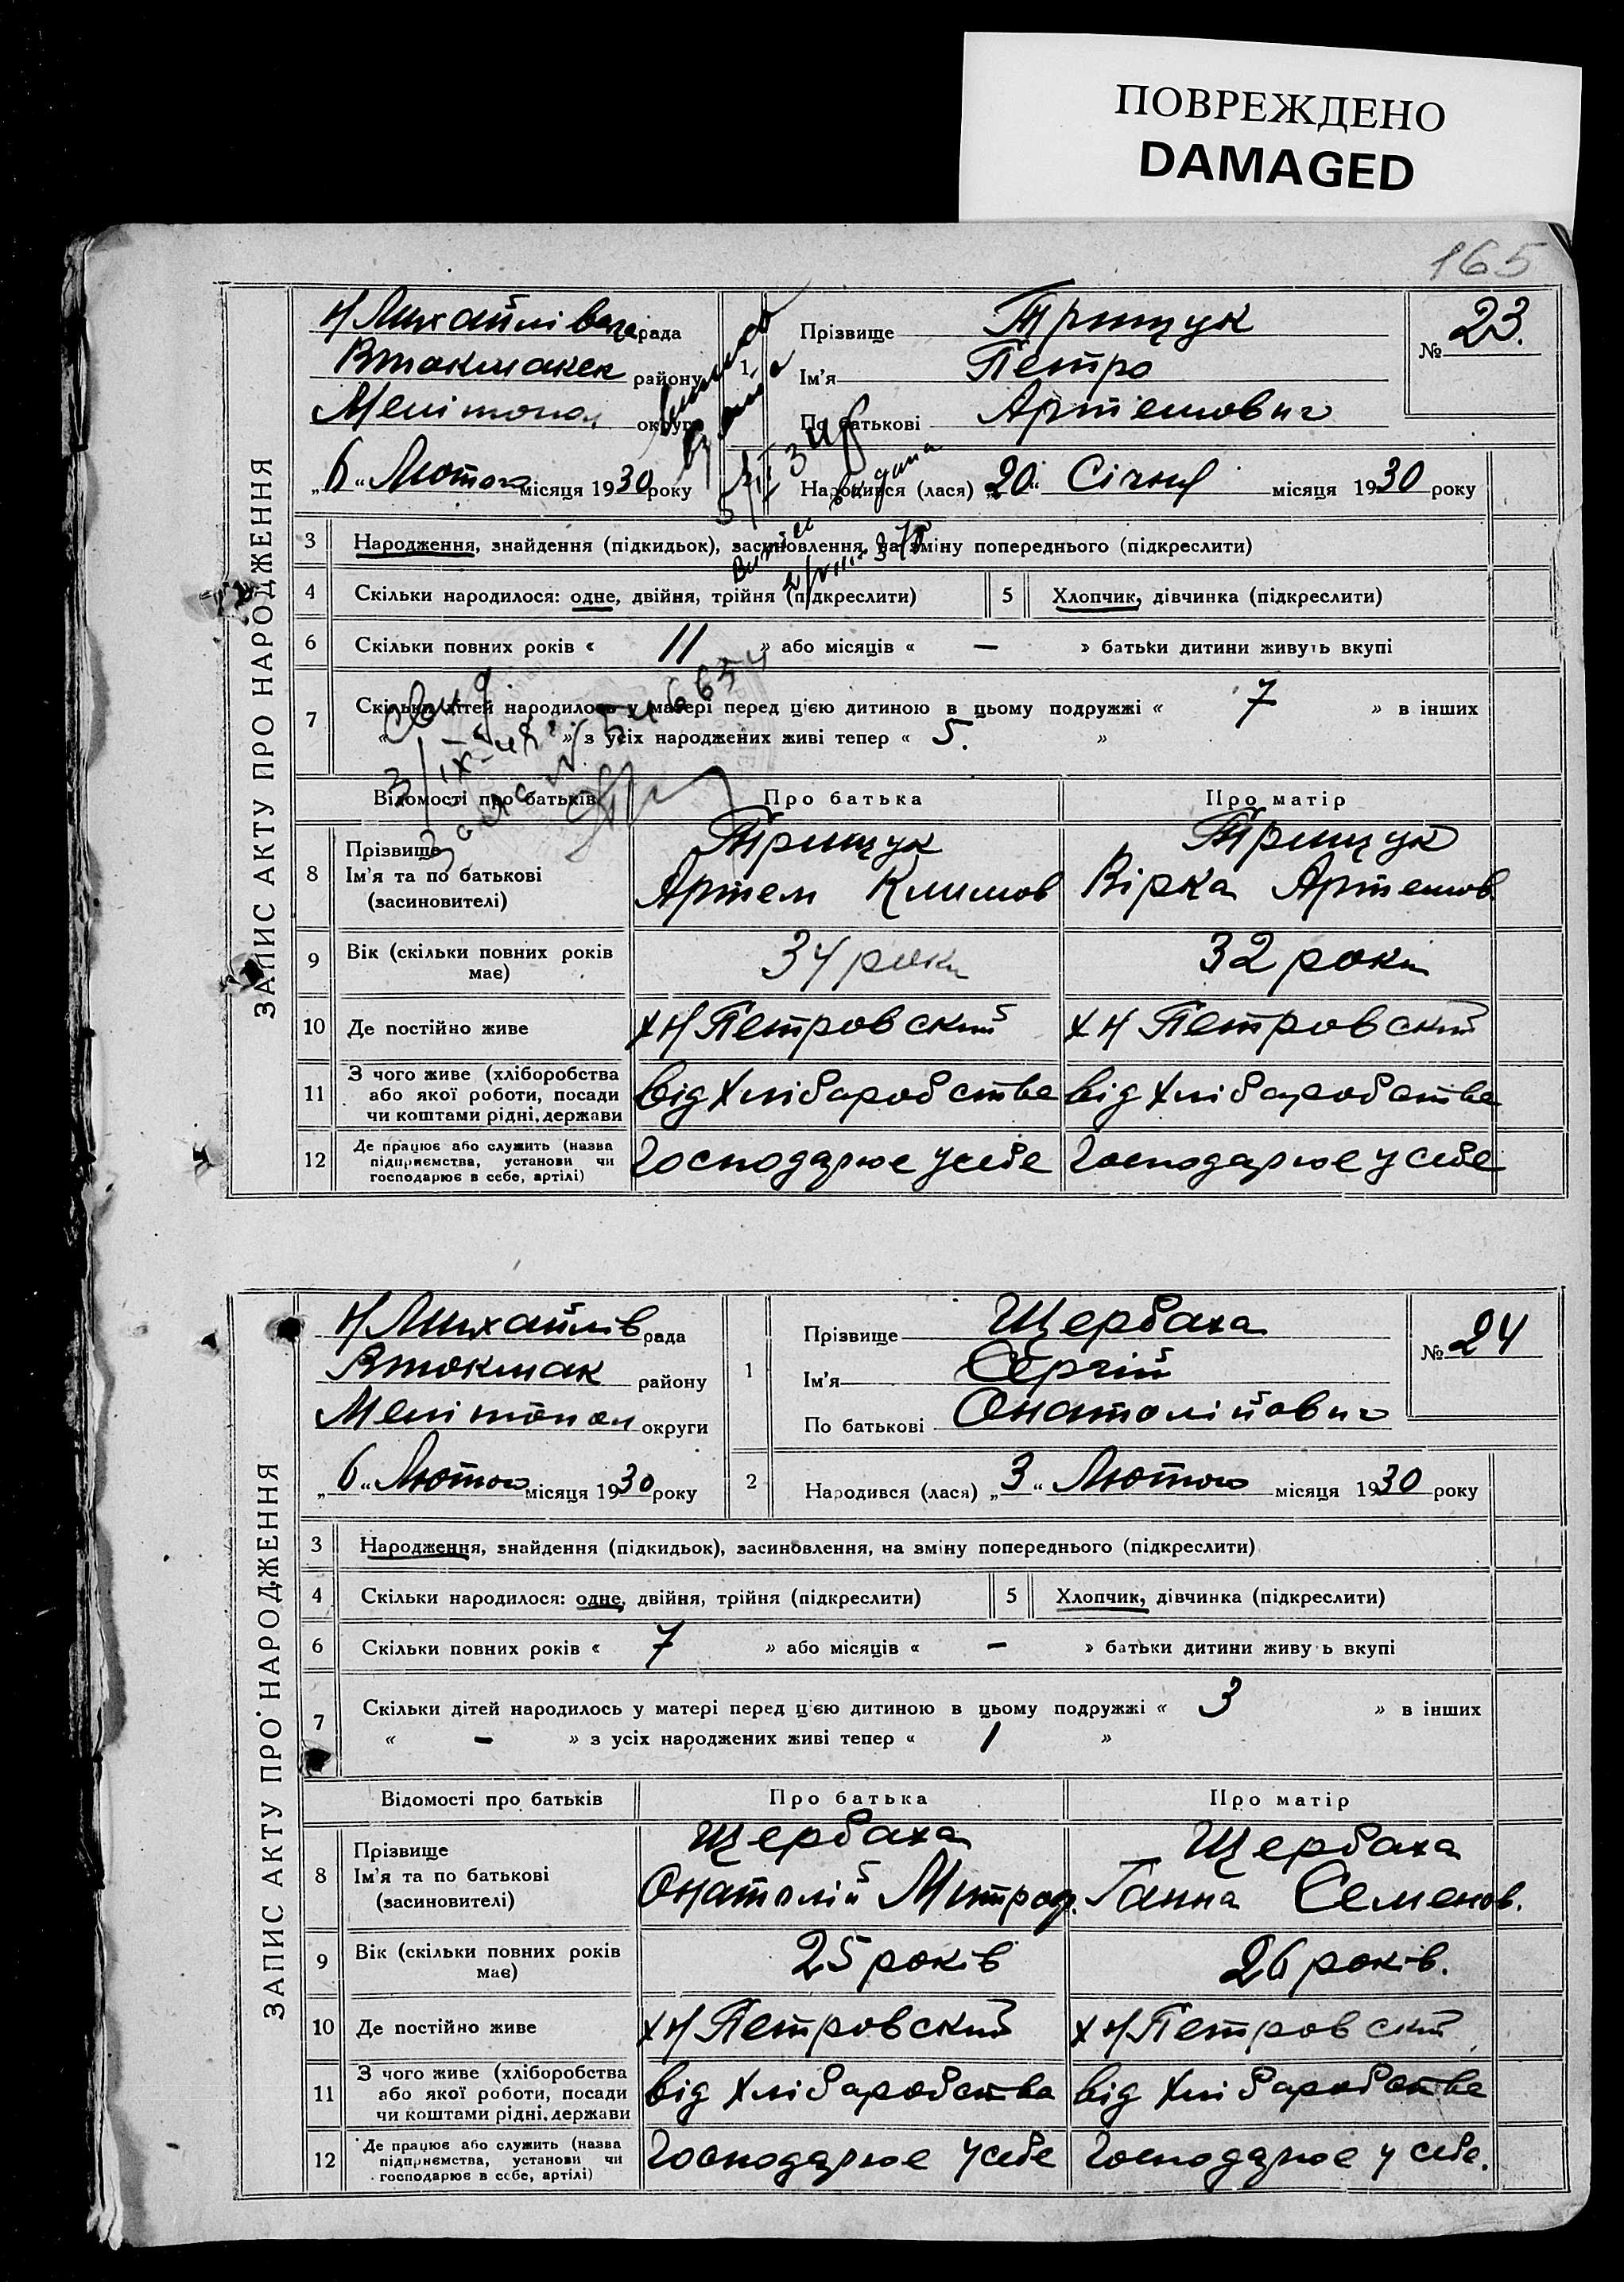 ПОВРЕЖДЕНО
DAMAGED
165
ЗАПИС АКТУ ПРО НАРОДЖЕННЯ
Н Михайлівська рада
Втокмакск району
Мелітопол округи
„6“ Лютого місяця 1930 року
1
Прізвище Трищук
Ім'я Петро
По батькові Артемович
№ 23.
Народився (лася) „20“ Січня місяця 1930 року
3 Народження, знайдення (підкидьок), засиновлення, на зміну попереднього (підкреслити)
4 Скільки народилося: одне, двійня, трійня (підкреслити)
5 Хлопчик, дівчинка (підкреслити)
6 Скільки повних років « 11 » або місяців « — » батьки дитини живуть вкупі
7 Скільки дітей народилось у матері перед цією дитиною в цьому подружжі « 7 » в інших
« — » з усіх народжених живі тепер « 5. »
Відомості про батьків Про батька Про матір
8 Прізвище
Ім'я та по батькові
(засиновителі)
Трищук
Артем Климов
Трищук
Вірка Артемов.
9 Вік (скільки повних років
має)
34 роки 32 роки
10 Де постійно живе х Н Петровський х Н Петровский
11 З чого живе (хліборобства
або якої роботи, посади
чи коштами рідні, держави
від Хліборобства від Хліборобства
12 Де працює або служить (назва
підприємства, установи чи
господарює в себе, артілі)
Господарює у себе Господарює у себе
ЗАПИС АКТУ ПРО НАРОДЖЕННЯ
Н Михайлів рада
Втокмак району
Мелітопол округи
„6“ Лютого місяця 1930 року
1
Прізвище Щербаха
Ім'я Сергій
По батькові Онатолійович
№ 24
2 Народився (лася) „3“ Лютого місяця 1930 року
3 Народження, знайдення (підкидьок), засиновлення, на зміну попереднього (підкреслити)
4 Скільки народилося: одне, двійня, трійня (підкреслити)
5 Хлопчик, дівчинка (підкреслити)
6 Скільки повних років « 7 » або місяців « — » батьки дитини живу ь вкупі
7 Скільки дітей народилось у матері перед цією дитиною в цьому подружжі « 3 » в інших
« — » з усіх народжених живі тепер « 1 »
Відомості про батьків Про батька Про матір
8 Прізвище
Ім'я та по батькові
(засиновителі)
Щербаха
Онатолій Митроф.
Щербаха
Ганна Семенов.
9 Вік (скільки повних років
має)
25 років 26 років.
10 Де постійно живе х Н Петровский х Н Петровский
11 З чого живе (хліборобства
або якої роботи, посади
чи коштами рідні, держави
від Хліборобства від Хліборобства
12 Де працює або служить (назва
підприємства, установи чи
господарює в себе, артілі)
Господарює у себе Господарює у себе.